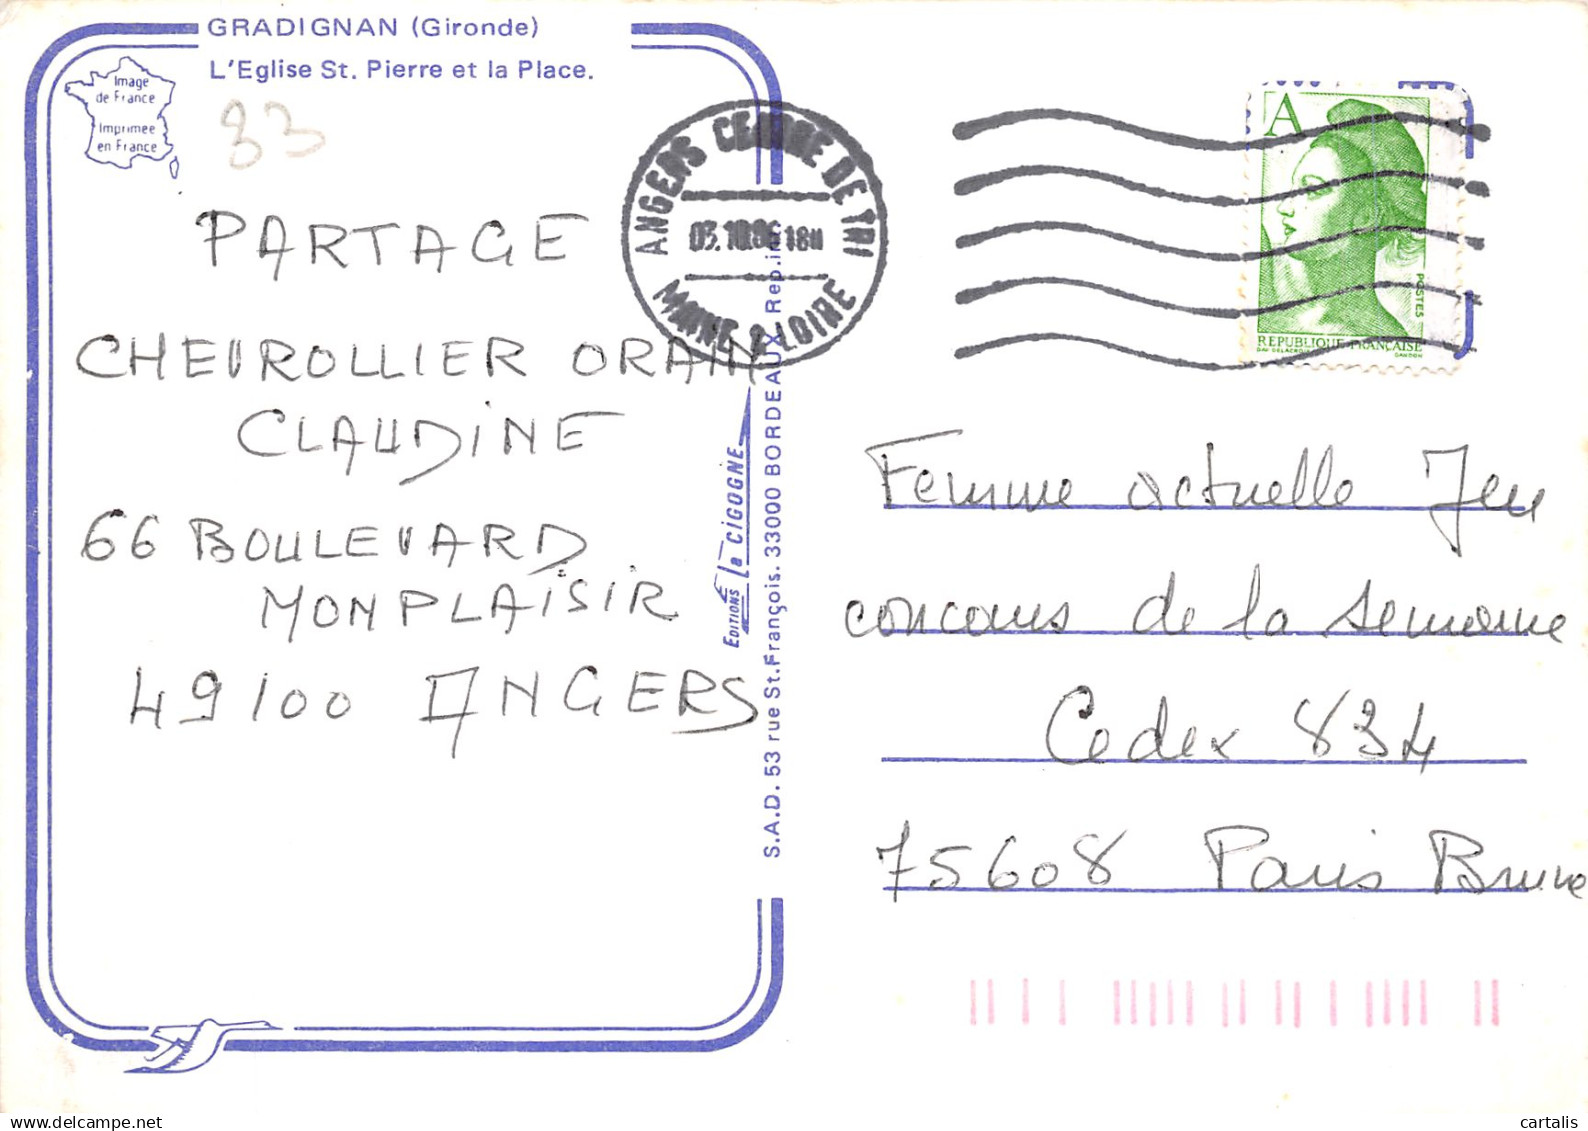 GRADIGNAN (Gironde)
L'Eglise St. Pierre et la Place.
Image
de France
Imprimée
en France
83
PARTAGE
CHEVROLLIER ORAIN
CLAUDINE
66 BOULEVARD
MONPLAISIR
49100 ANGERS
ANGERS CENTRE DE TRI
18H
MAINE & LOIRE
EDITIONS la CIGOGNE
S.A.D. 53 rue St.François. 33000 BORDEAUX Rep.int.
A
POSTES
REPUBLIQUE FRANÇAISE
GANDON
Femme actuelle Jeu
concours de la semaine
Cedex 834
75608 Paris Brune
cartalis